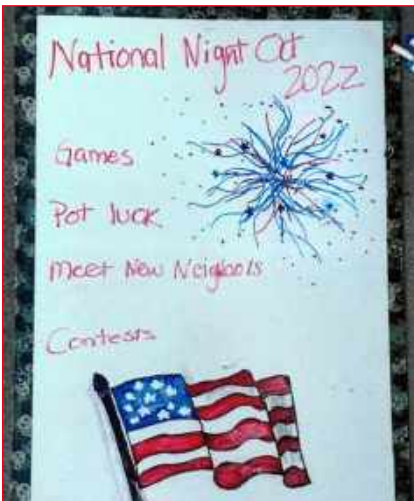 National Night Out
2022
Games
Pot luck
Meet New Neigbols
Contests